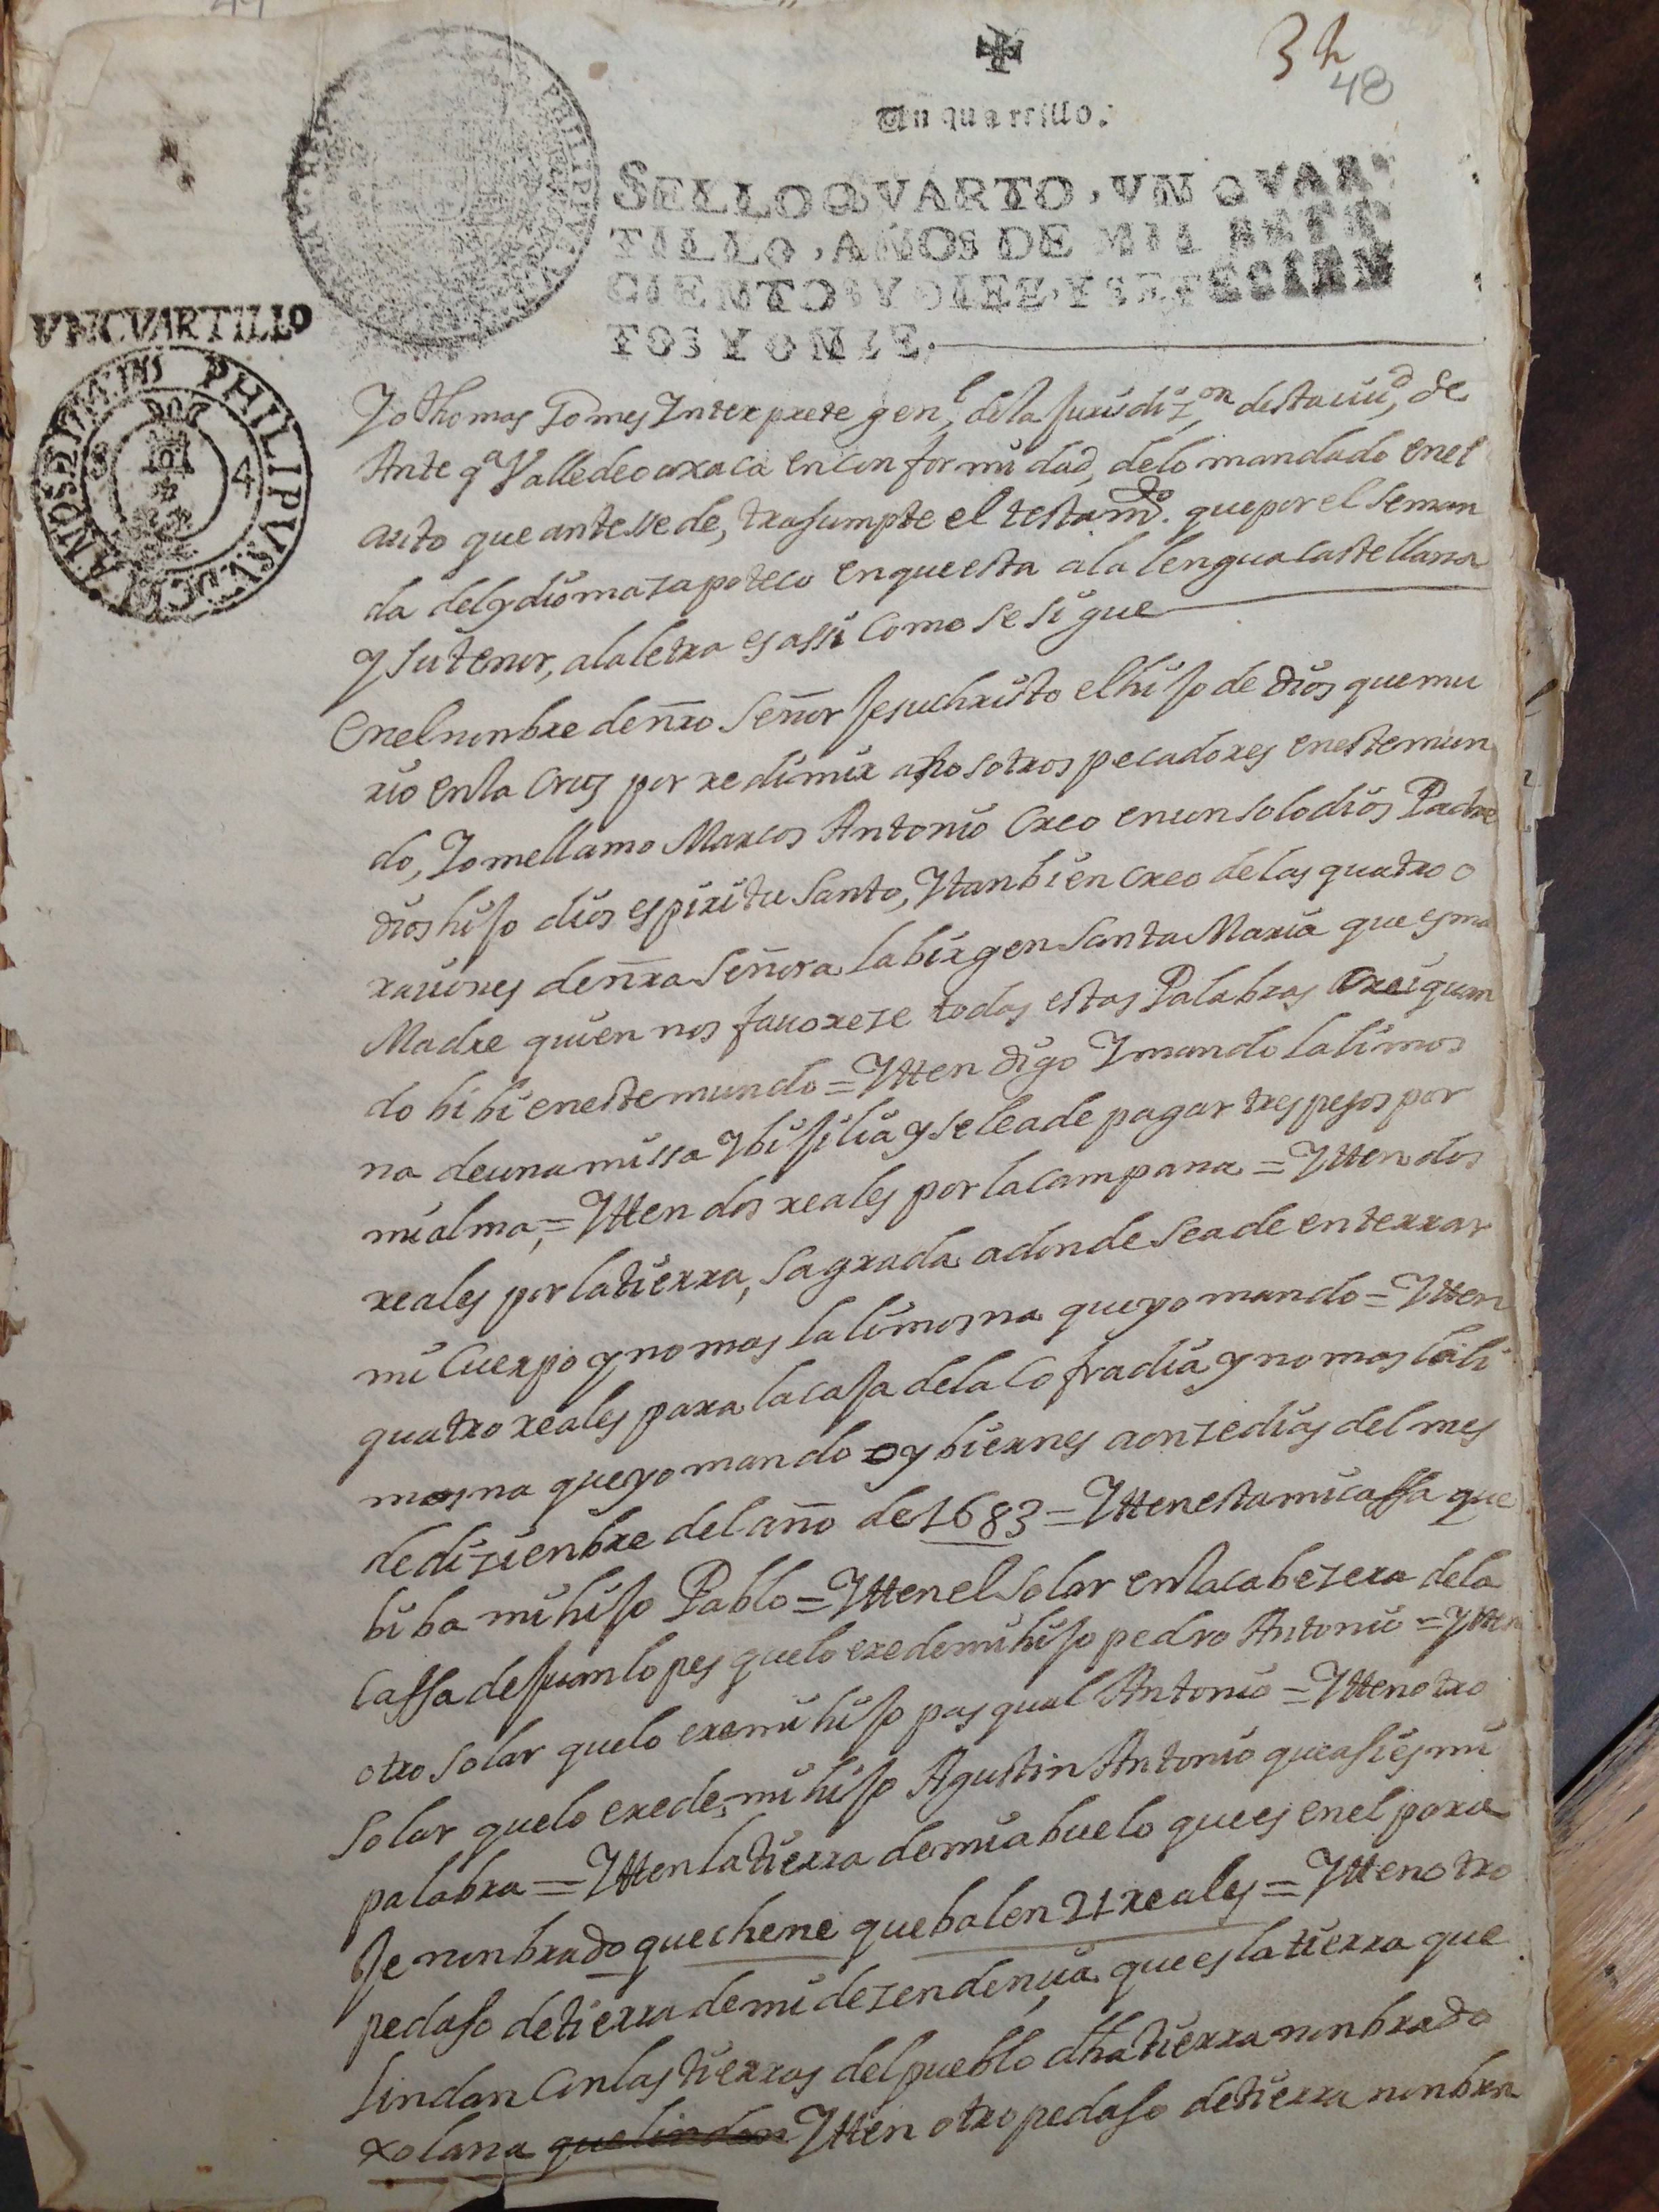 3 h
48
Un quartillo.
SELLO QVARTO, VN QVAR-
TILLO, AÑOS DE MIL SETE
CIENTOS Y DIEZ, Y SETECIEN
TOS Y ONZE.
VNCVARTILLO
PHILIPVS
Yo thomas Gomes Interprete gen.l de la Jurisdiz.on desta ciu.d de
Ante q.a Valle de oaxaca en conformidad, de lo mandado en el
auto que antesede, trasumpte el testam.to que por el se man
da del ydioma zapoteco en que esta a la lengua castellana
y su tenor, a la letra es assi como se sigue
En el nonbre de nro Señor Jesuchristo el hijo de dios que mu
rio en la Cruz por redimir a nosotros pecadores en este mun
do, Yo me llamo Marcos Antonio Creo en un solo dios Padre
dios hijo dios espiritu Santo, Y tanbien creo de las quatro o
raciones de nra Señora la birgen Santa Maria que es mi
Madre quien nos favoreze todas estas Palabras Crei quan
do bibi en este mundo = Ytten digo Y mando la limos
na de una missa Y bijilia y se le a de pagar tres pesos por
mi alma, = Ytten dos reales por la campana = Ytten dos
reales por la tierra, sagrada adonde se a de enterrar
mi Cuerpo y no mas la limosna que yo mando = Ytten
quatro reales para la casa de la Cofradia y no mas la li
mosna que yo mando oy biernes a onze dias del mes
de dizienbre del año de 1683 = Ytten esta mi cassa que
biba mi hijo Pablo = Ytten el solar en la cabezera de la
Cassa de Juan lopes que lo erede mi hijo pedro Antonio = Ytten
otro solar que lo ere mi hijo pasqual Antonio = Ytten otro
solar que lo erede, mi hijo Agustin Antonio que asi es mi
palabra = Ytten la tierra de mi abuelo que es en el para
Je nonbrado quechene que balen 21 reales = Ytten otro
pedaso de tierra de mi dezendencia que es la tierra que
lindan Con las tierras del pueblo dha tierra nonbrado
xolana que lindan Ytten otro pedaso de tierra nonbra